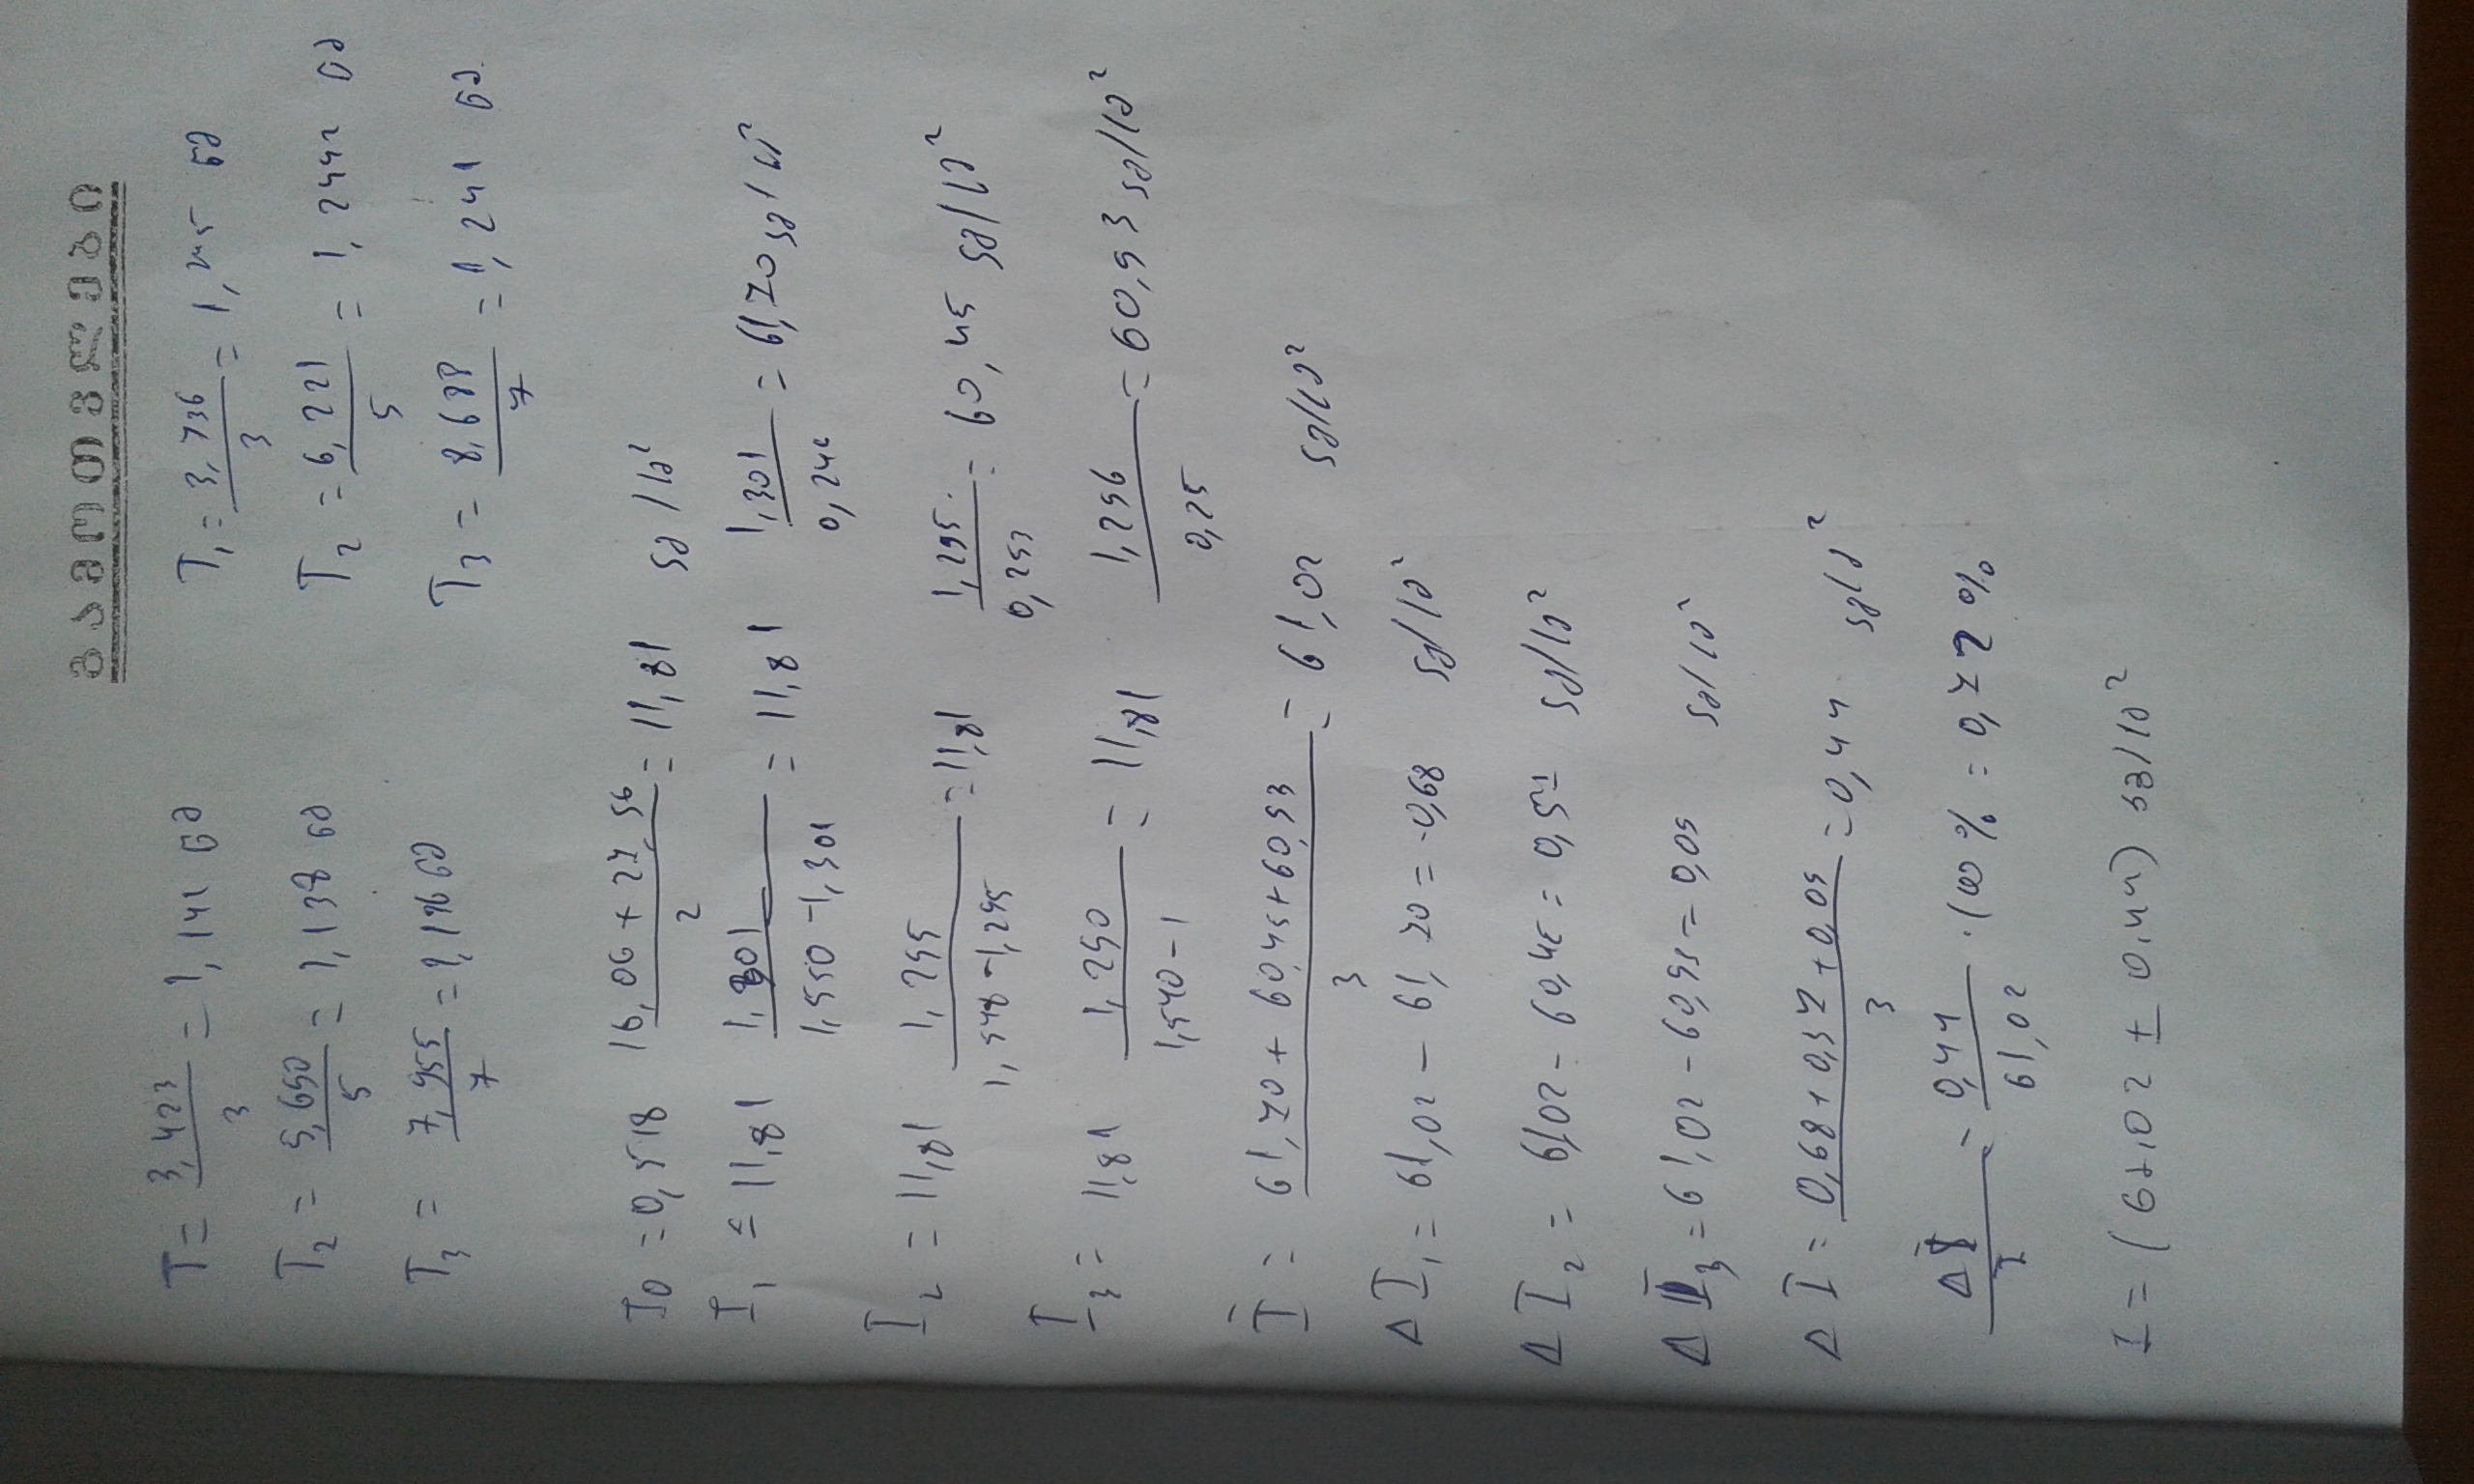 გამოთვლები
T = 3,423 / 3 = 1,141 წმ T₁ = 3,736 / 3 = 1,245 წმ
T₂ = 5,690 / 5 = 1,138 წმ T₂ = 6,221 / 5 = 1,2442 წმ
T₃ = 7,955 / 7 = 1,136 წმ T₃ = 8,688 / 7 = 1,241 წმ
I₀ = 0,518 16,06 + 27,56 / 2 = 11,81 კგ/სმ²
I₁ = 11,81 1,301 / 1,550 - 1,301 = 11,81 1,301 / 0,249 = 61,70 კგ/სმ²
I₂ = 11,81 1,295 / 1,548 - 1,295 = 11,81 1,295 / 0,253 = 60,45 კგ/სმ²
I₃ = 11,81 1,290 / 1,540 - 1 = 11,81 1,296 / 0,25 = 60,93 კგ/სმ²
Ī = 61,70 + 60,45 + 60,93 / 3 = 61,02 კგ/სმ²
Δ I₁ = 61,02 - 61,70 = -0,68 კგ/სმ²
Δ I₂ = 61,02 - 60,45 = 0,57 კგ/სმ²
Δ I₃ = 61,02 - 60,93 = 0,09 კგ/სმ²
Δ I = 0,68 + 0,57 + 0,09 / 3 = 0,44 კგ/სმ²
ΔĪ / I = 0,44 / 61,02 · 100 % = 0,72 %
I = (61,02 ± 0,44) კგ/სმ²